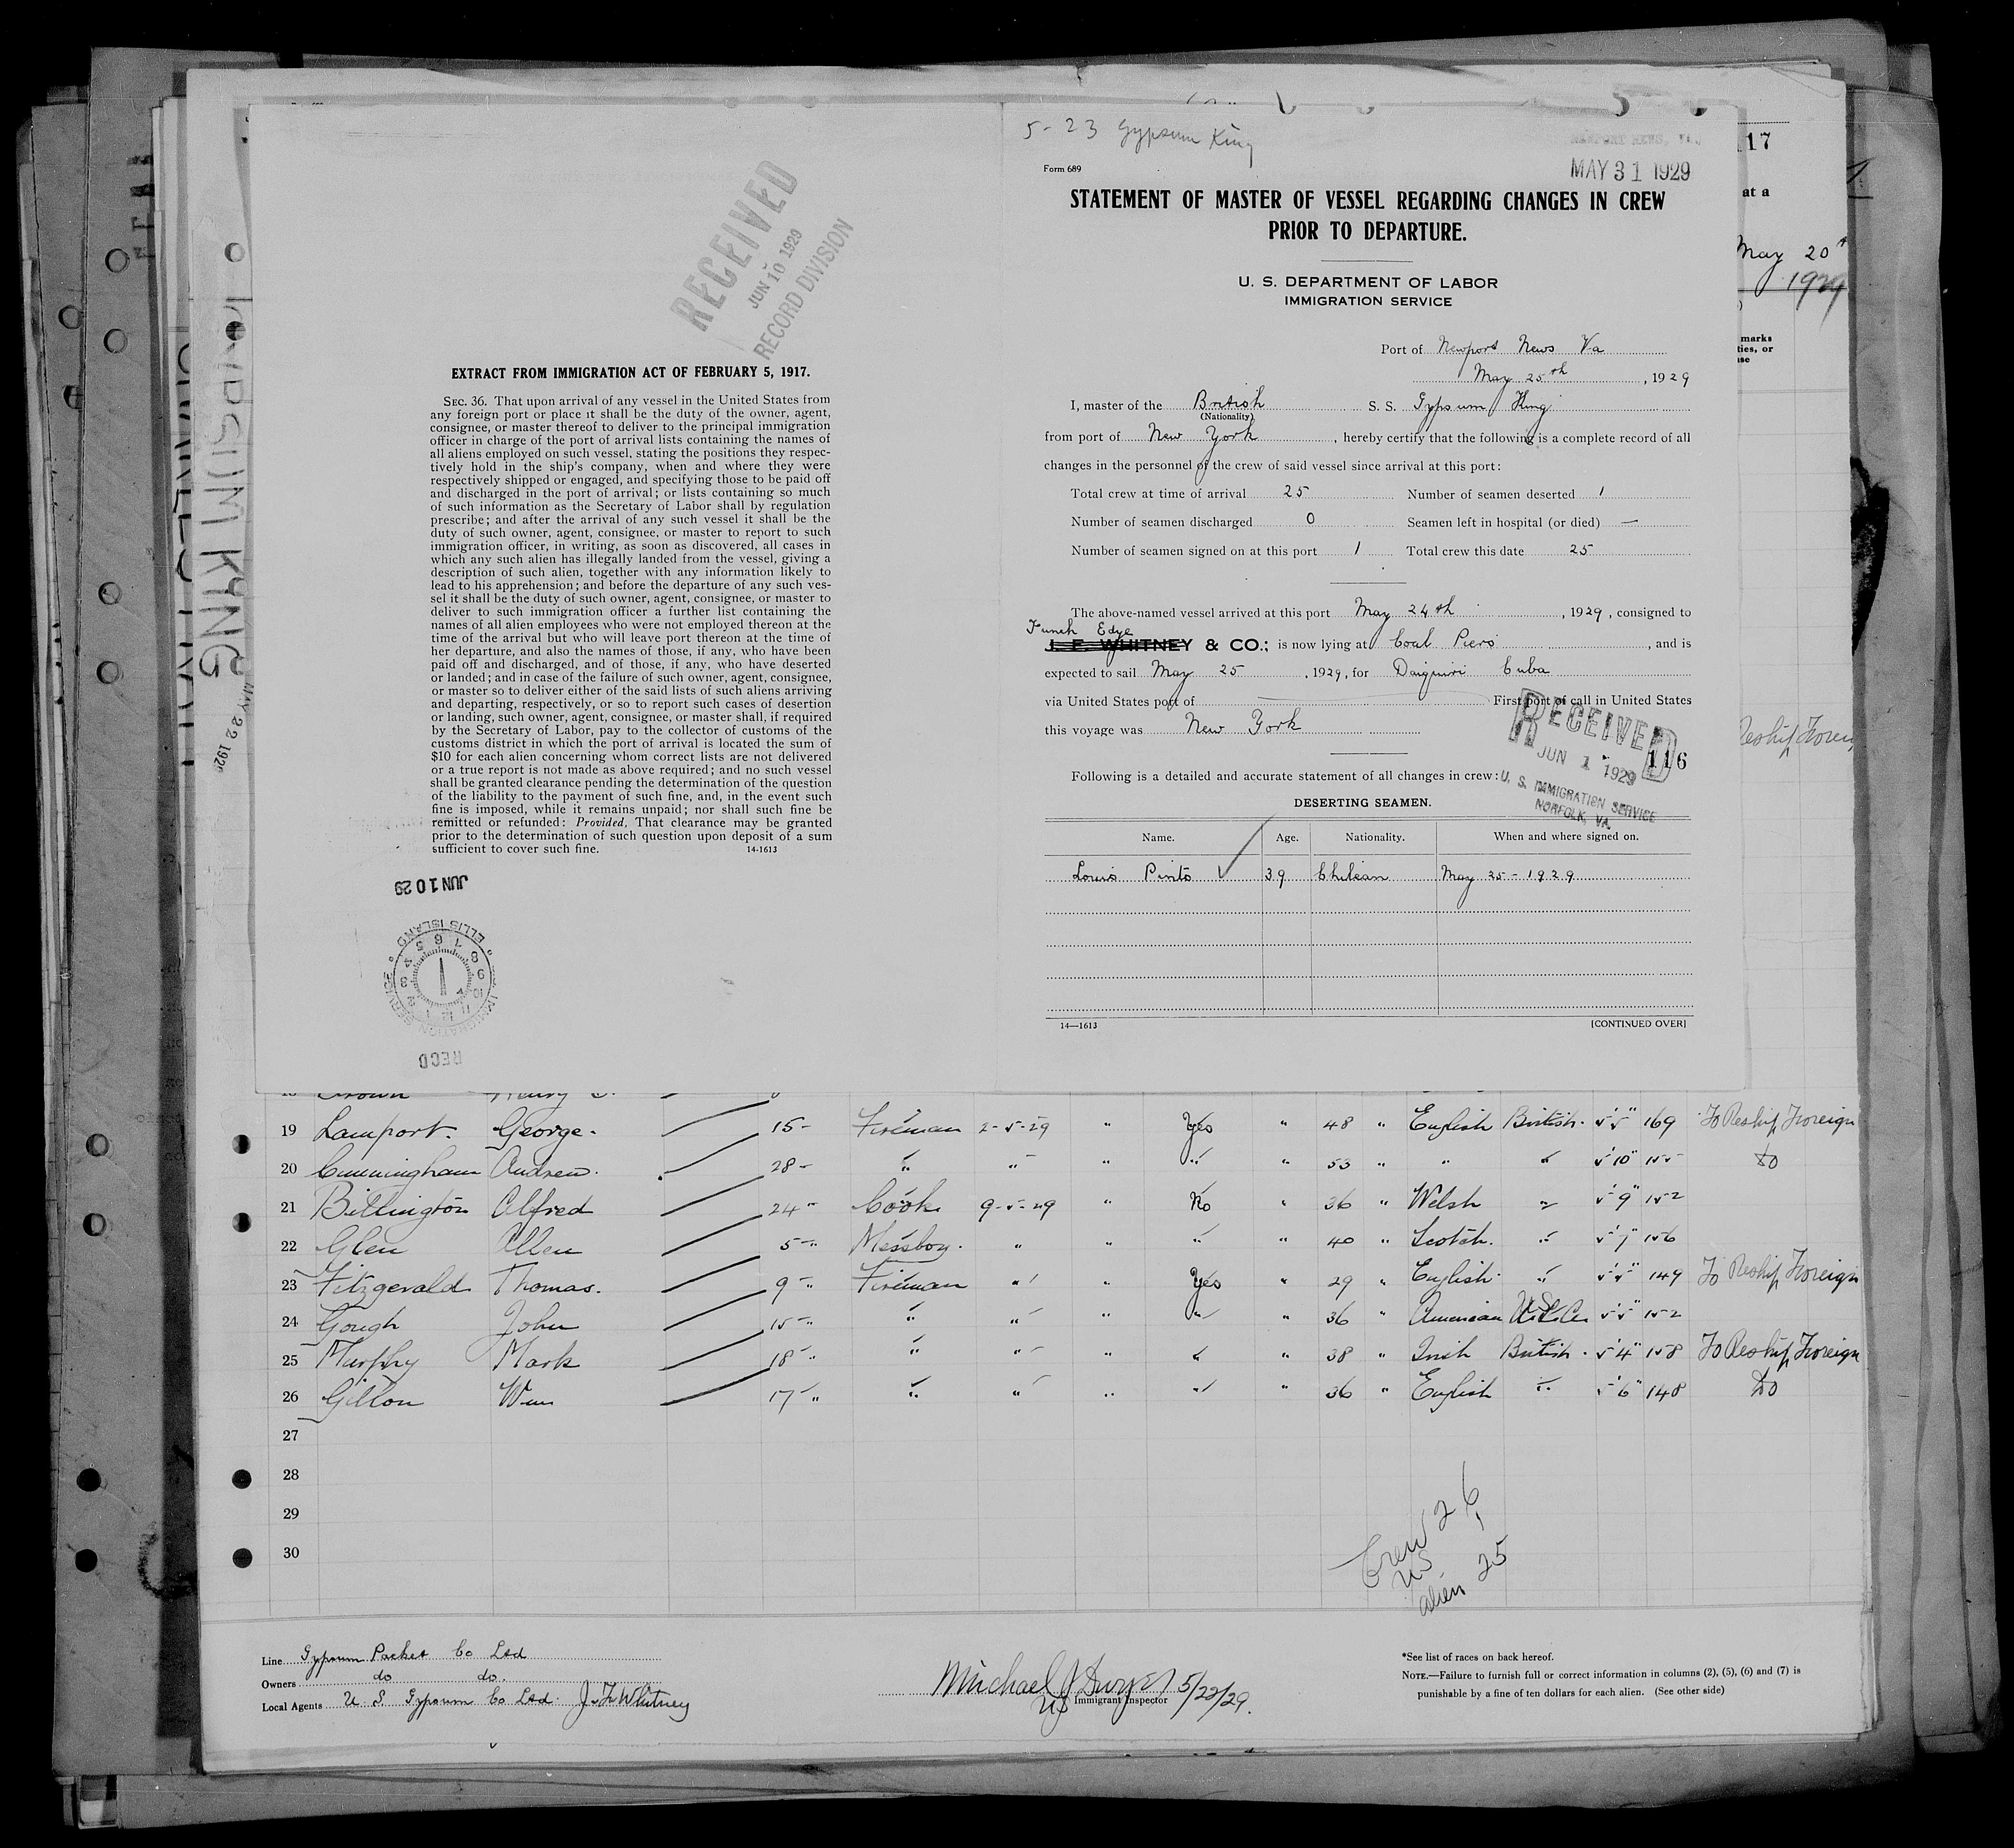 5-23 Gypsum King
NEWPORT NEWS, VA.
MAY 31 1929
Form 689
STATEMENT OF MASTER OF VESSEL REGARDING CHANGES IN CREW
PRIOR TO DEPARTURE.
U. S. DEPARTMENT OF LABOR
IMMIGRATION SERVICE
Port of Newport News Va
May 25th, 1929
I, master of the British S. S. Gypsum King
(Nationality)
from port of New York, hereby certify that the following is a complete record of all
changes in the personnel of the crew of said vessel since arrival at this port:
Total crew at time of arrival 25 Number of seamen deserted 1
Number of seamen discharged 0 Seamen left in hospital (or died) —
Number of seamen signed on at this port 1 Total crew this date 25
The above-named vessel arrived at this port May 24th, 1929, consigned to
Funch Edye
J. F. WHITNEY & CO.; is now lying at Coal Piers, and is
expected to sail May 25, 1929, for Daiquiri Cuba
via United States port of First port of call in United States
this voyage was New York
RECEIVED
JUN 1 1929
U. S. IMMIGRATION SERVICE
NORFOLK, VA.
116
Following is a detailed and accurate statement of all changes in crew:
DESERTING SEAMEN.
Name. Age. Nationality. When and where signed on.
Louis Pinto 39 Chilean May 25-1929
14—1613 [CONTINUED OVER]
RECEIVED
JUN 10 1929
RECORD DIVISION
EXTRACT FROM IMMIGRATION ACT OF FEBRUARY 5, 1917.
SEC. 36. That upon arrival of any vessel in the United States from
any foreign port or place it shall be the duty of the owner, agent,
consignee, or master thereof to deliver to the principal immigration
officer in charge of the port of arrival lists containing the names of
all aliens employed on such vessel, stating the positions they respec-
tively hold in the ship's company, when and where they were
respectively shipped or engaged, and specifying those to be paid off
and discharged in the port of arrival; or lists containing so much
of such information as the Secretary of Labor shall by regulation
prescribe; and after the arrival of any such vessel it shall be the
duty of such owner, agent, consignee, or master to report to such
immigration officer, in writing, as soon as discovered, all cases in
which any such alien has illegally landed from the vessel, giving a
description of such alien, together with any information likely to
lead to his apprehension; and before the departure of any such ves-
sel it shall be the duty of such owner, agent, consignee, or master to
deliver to such immigration officer a further list containing the
names of all alien employees who were not employed thereon at the
time of the arrival but who will leave port thereon at the time of
her departure, and also the names of those, if any, who have been
paid off and discharged, and of those, if any, who have deserted
or landed; and in case of the failure of such owner, agent, consignee,
or master so to deliver either of the said lists of such aliens arriving
and departing, respectively, or so to report such cases of desertion
or landing, such owner, agent, consignee, or master shall, if required
by the Secretary of Labor, pay to the collector of customs of the
customs district in which the port of arrival is located the sum of
$10 for each alien concerning whom correct lists are not delivered
or a true report is not made as above required; and no such vessel
shall be granted clearance pending the determination of the question
of the liability to the payment of such fine, and, in the event such
fine is imposed, while it remains unpaid; nor shall such fine be
remitted or refunded: Provided, That clearance may be granted
prior to the determination of such question upon deposit of a sum
sufficient to cover such fine. 14-1613
JUN 10 29
ELLIS ISLAND
IMMIGRATION SERVICE
RECD
GYPSUM KING
MAY 22 1929
17
at a
May 20th
1929
marks
ties, or
ase
Reship Foreign
18 Brown Henry
19 Lamport. George. 15- Fireman 2-5-29 " Yes " 48 " English British. 5'5" 169 To Reship Foreign
20 Cunningham Andrew. 28- " " " " " 53 " " " 5'10" 155 do
21 Billington Alfred 24- Cook 9-5-29 " No " 36 " Welsh " 5'9" 152
22 Glen Allen 5-" Messboy. " " " " 40 " Scotch. " 5'7" 156
23 Fitzgerald Thomas. 9-" Fireman " " Yes " 29 " English " 5'5" 149 To Reship Foreign
24 Gough John 15-" " " " " 36 " American U.S.C. 5'5" 152
25 Murphy Mark 18-" " " " " 38 " Irish British. 5'4" 158 To Reship Foreign
26 Gillon Wm 17-" " " " " " 36 " English " 5'6" 148 do
27
28
29
30
Crew 26
US 1
alien 25
Line Gypsum Packet Co Ltd
Owners do do.
Local Agents U S Gypsum Co Ltd. J. F. Whitney
Michael J Dwyer 5/22/29.
US Immigrant Inspector
*See list of races on back hereof.
NOTE.—Failure to furnish full or correct information in columns (2), (5), (6) and (7) is
punishable by a fine of ten dollars for each alien. (See other side)